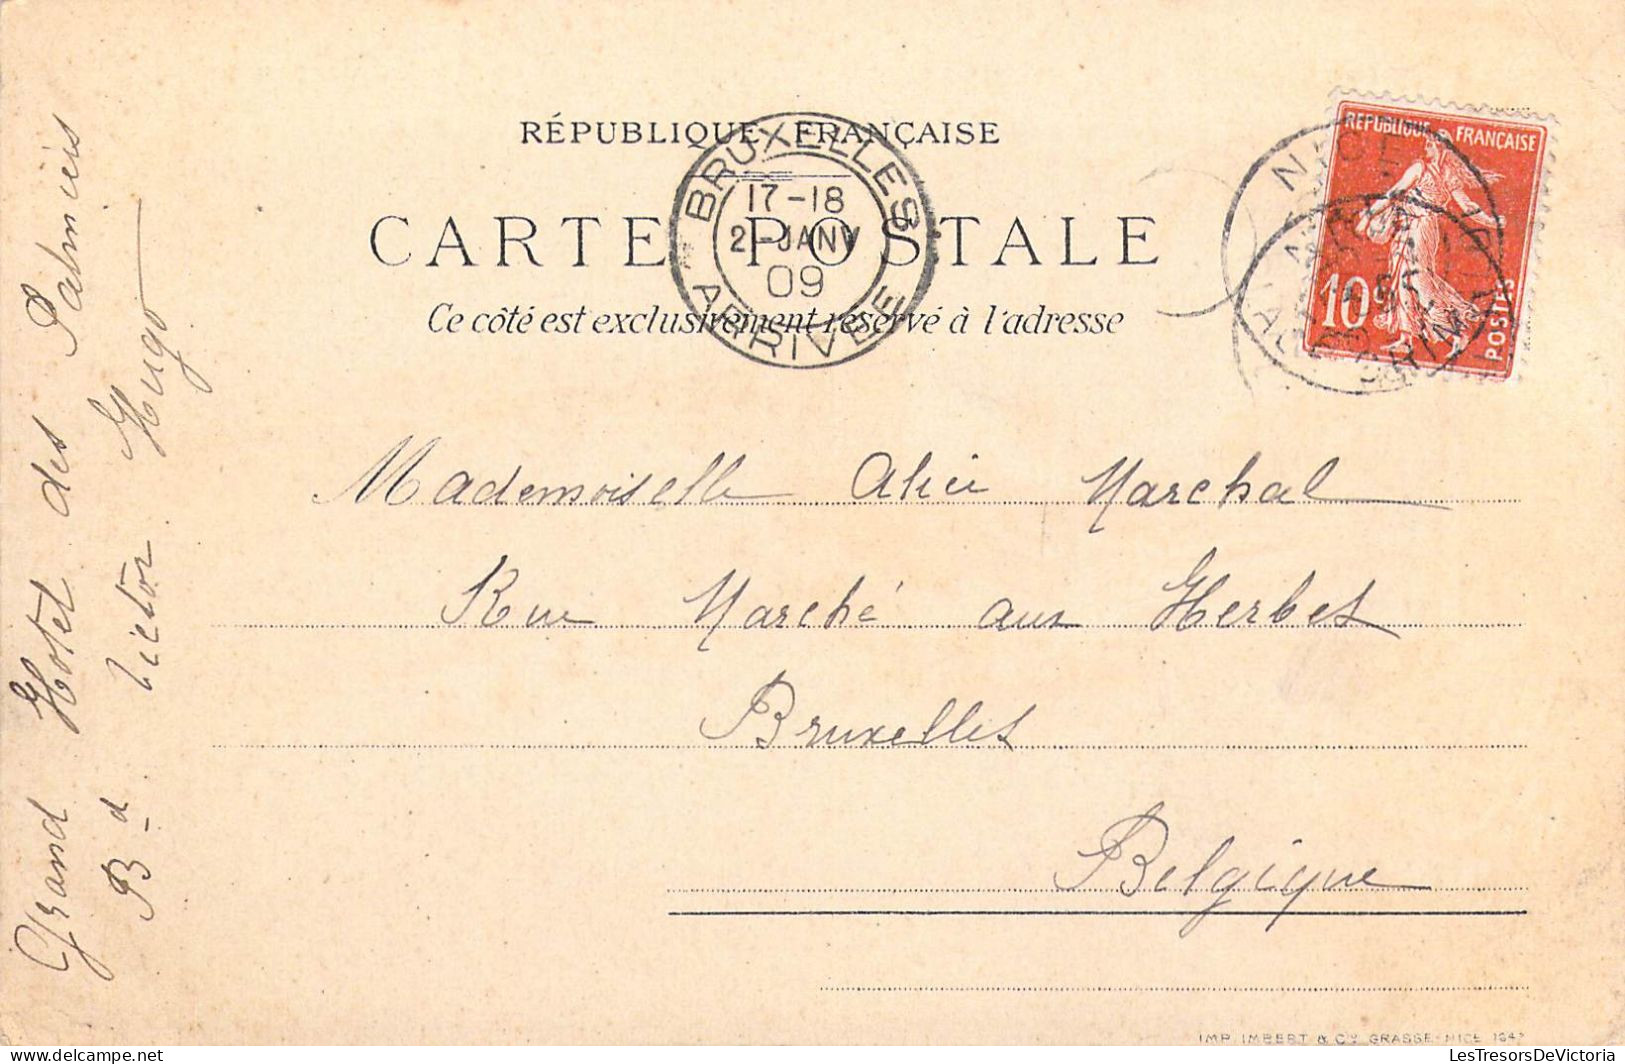 RÉPUBLIQUE FRANÇAISE
CARTE POSTALE
Ce côté est exclusivement réservé à l'adresse
BRUXELLES
17-18
2-JANV
09
ARRIVÉE
REPUBLIQUE FRANÇAISE
10c
POSTES
Mademoiselle Alice Marchal
Rue Marché aux Herbes
Bruxelles
Belgique
Grand Hotel des Palmiers
Bd Victor Hugo
IMP. IMBERT & Cie GRASSE-NICE
LesTresorsDeVictoria